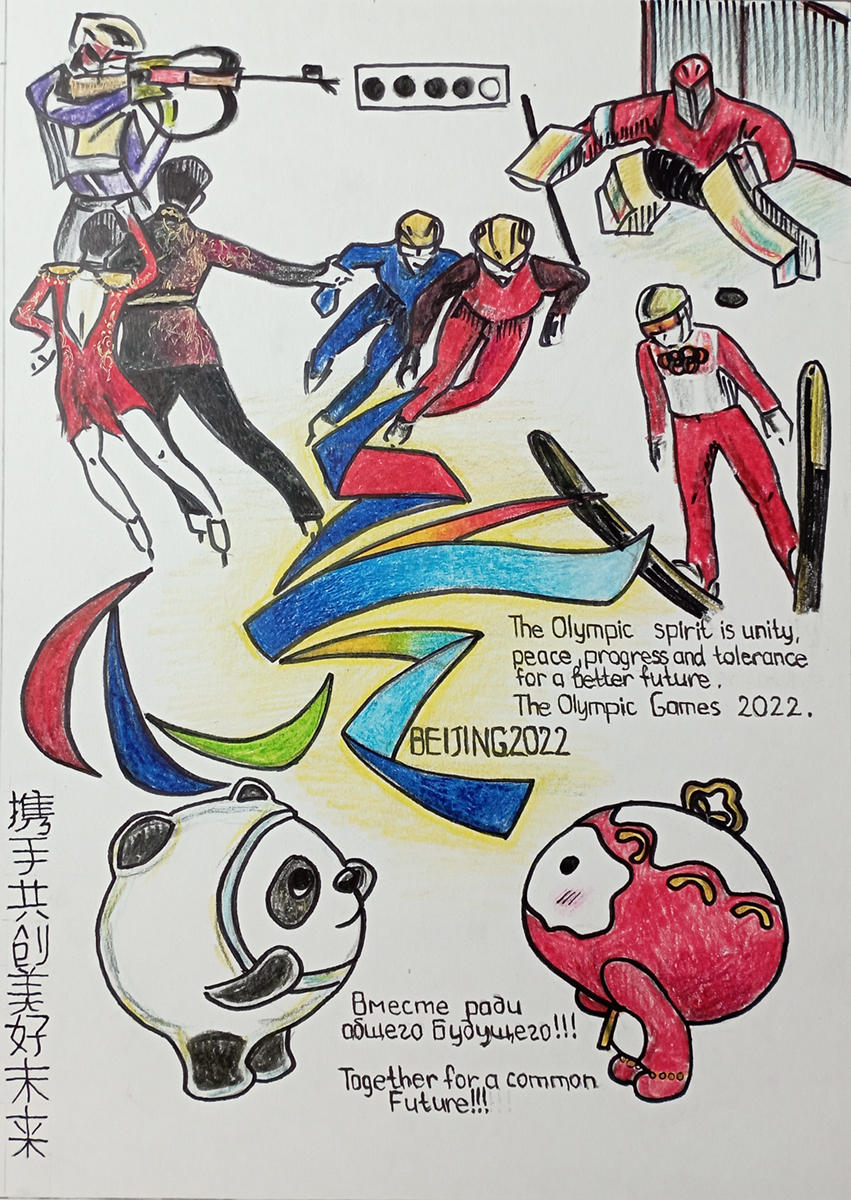 The Olympic spirit is unity,
peace, progress and tolerance
for a better future.
The Olympic Games 2022.
BEIJING2022
携手共创美好未来
Вместе ради
общего Будущего!!!
Together for a common
Future!!!